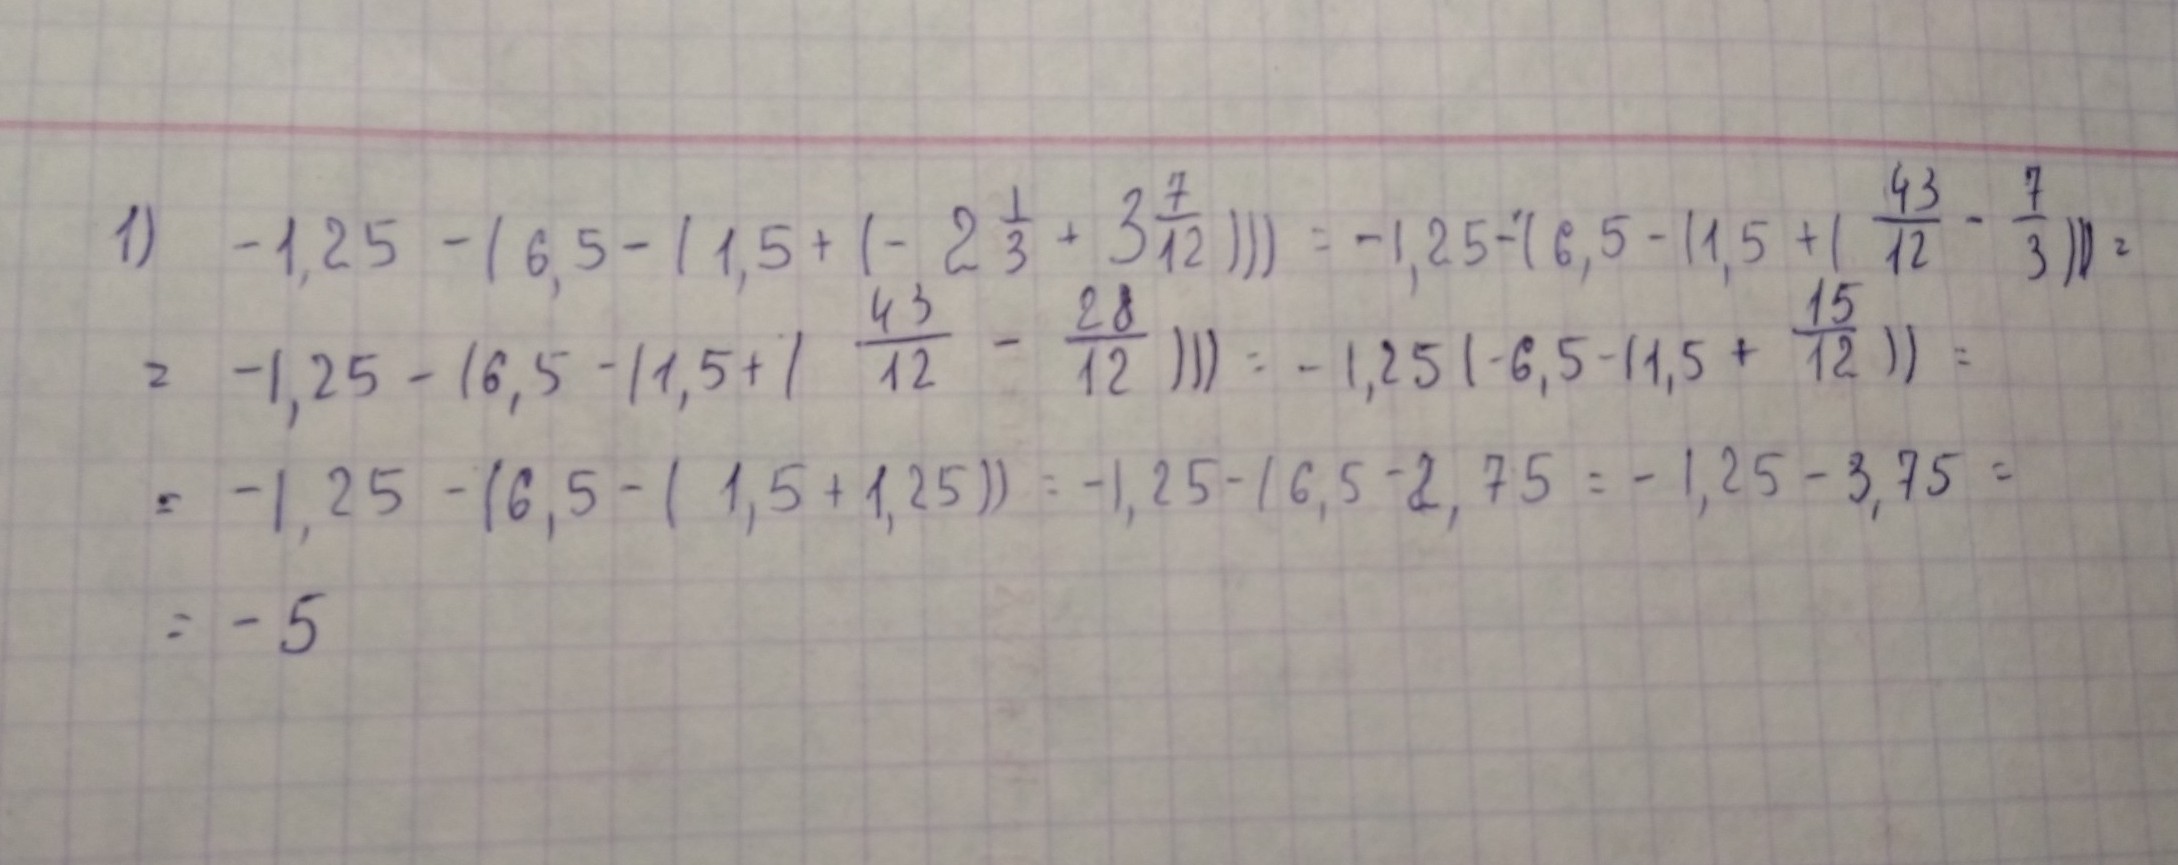 1) -1,25 - (6,5 - (1,5 + (-2 1/3 + 3 7/12))) = -1,25 - (6,5 - (1,5 + (43/12 - 7/3))) =
= -1,25 - (6,5 - (1,5 + (43/12 - 28/12))) = -1,25 (-6,5 - (1,5 + 15/12)) =
= -1,25 - (6,5 - (1,5 + 1,25)) = -1,25 - (6,5 - 2,75 = -1,25 - 3,75 =
= -5